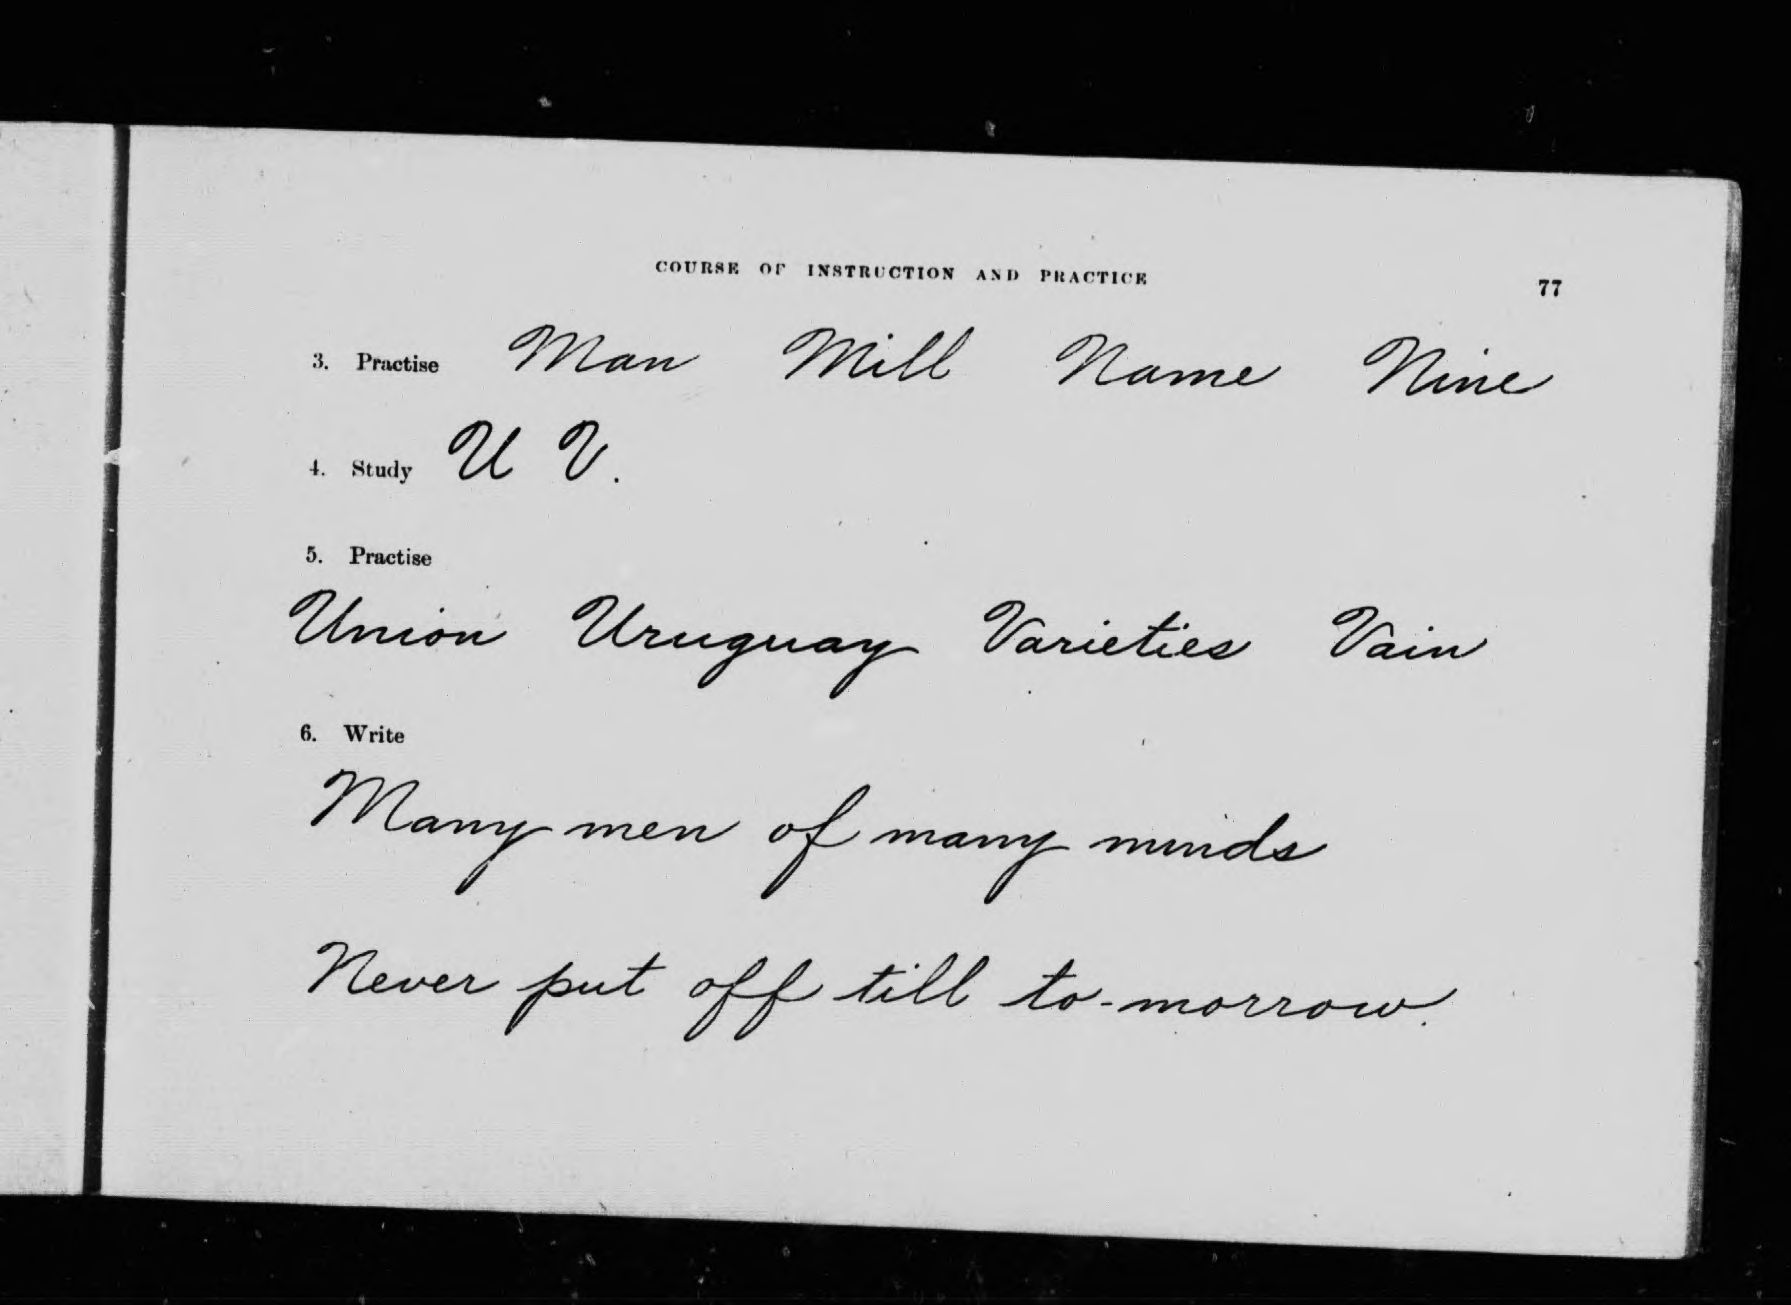 COURSE OF INSTRUCTION AND PRACTICE 77
3. Practise Man Mill Name Nine
4. Study U V.
5. Practise
Union Uruguay Varieties Vain
6. Write
Many men of many minds
Never put off till to-morrow.